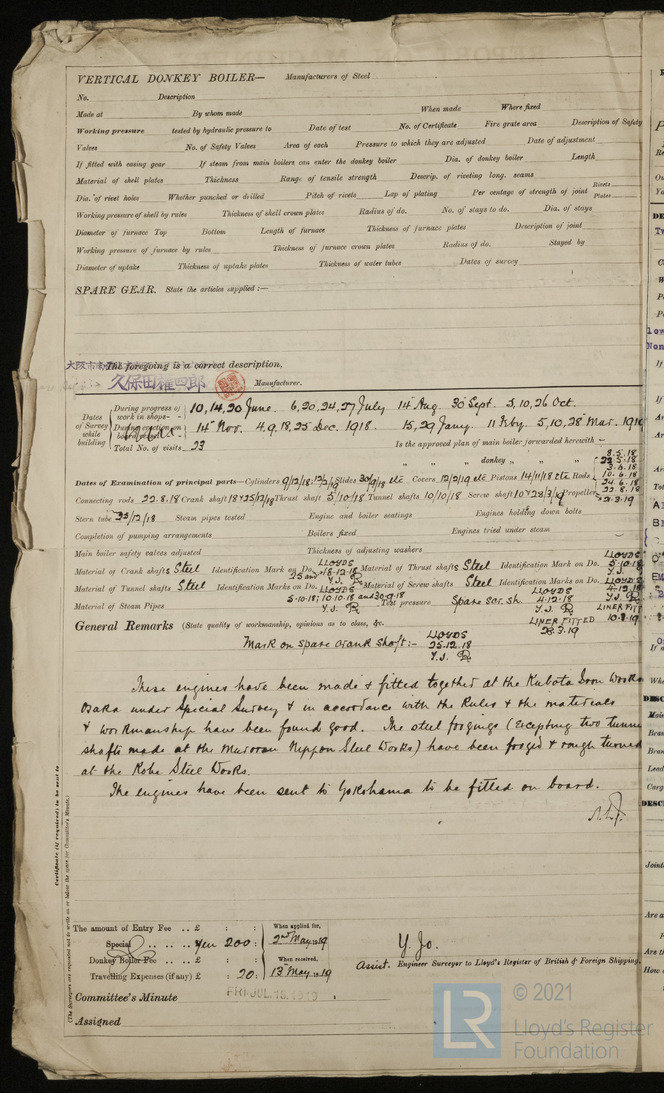 VERTICAL DONKEY BOILER— Manufacturers of Steel
No. Description
Made at By whom made When made Where fixed
Working pressure tested by hydraulic pressure to Date of test No. of Certificate Fire grate area Description of Safety
Valves No. of Safety Valves Area of each Pressure to which they are adjusted Date of adjustment
If fitted with easing gear If steam from main boilers can enter the donkey boiler Dia. of donkey boiler Length
Material of shell plates Thickness Range of tensile strength Descrip. of riveting long. seams
Dia. of rivet holes Whether punched or drilled Pitch of rivets Lap of plating Per centage of strength of joint Rivets Plates
Working pressure of shell by rules Thickness of shell crown plates Radius of do. No. of stays to do. Dia. of stays
Diameter of furnace Top Bottom Length of furnace Thickness of furnace plates Description of joint
Working pressure of furnace by rules Thickness of furnace crown plates Radius of do. Stayed by
Diameter of uptake Thickness of uptake plates Thickness of water tubes Dates of survey
SPARE GEAR. State the articles supplied :—
大阪市南
The foregoing is a correct description,
久保田権四郎 Manufacturer.
Dates of Survey while building
During progress of work in shops - - 10, 14, 20 June. 6, 20, 24, 27 July 14 Aug. 30 Sept. 3, 10, 26 Oct.
During erection on board vessel - - 14 Nov. 4, 9, 18, 25 Dec. 1918. 15, 29 Jany. 11 Feby. 5, 10, 28 Mar. 1919
Total No. of visits 23 Is the approved plan of main boiler forwarded herewith
" " " donkey " " "
8.5.18
22.5.18
3.6.18
10.6.18
24.6.18
22.8.18
28.3.19
Dates of Examination of principal parts—Cylinders 9/12/18 Slides 30/9/18 etc Covers 12/2/19 etc Pistons 14/11/18 etc Rods
Connecting rods 22.8.18 Crank shaft 18 & 25/12/18 Thrust shaft 5/10/18 Tunnel shafts 10/10/18 Screw shaft 10 & 28/3/19 Propeller
Stern tube 25/12/18 Steam pipes tested Engine and boiler seatings Engines holding down bolts
Completion of pumping arrangements Boilers fixed Engines tried under steam
Main boiler safety valves adjusted Thickness of adjusting washers
Material of Crank shafts Steel Identification Mark on Do. LLOYDS 25 and 18.12.18 Y.J. Material of Thrust shafts Steel Identification Mark on Do. LLOYDS 5.10.18 Y.J.
Material of Tunnel shafts Steel Identification Marks on Do. LLOYDS 5.10.18; 10.10.18 and 30.9.18 Y.J. Material of Screw shafts Steel Identification Marks on Do. LLOYDS 4.12.18 Y.J. LLOYDS 4.12.18 Y.J.
Material of Steam Pipes Test pressure Spare scr. sh. LINER FITTED 28.3.19 LINER FIT 10.3.19
General Remarks (State quality of workmanship, opinions as to class, &c.
Mark on Spare Crank Shaft :- LLOYDS
25.12.18
Y.J.
These engines have been made & fitted together at the Kubota Iron Works
Osaka under Special Survey & in accordance with the Rules & the materials
& workmanship have been found good. The steel forgings (excepting two tunne
shafts made at the Muroran Nippon Steel Works) have been forged & rough turned
at the Kobe Steel Works.
The engines have been sent to Yokohama to be fitted on board.
Certificate (if required) to be sent to
(The Surveyors are requested not to write on or below the space for Committee's Minute.)
The amount of Entry Fee . . £ : : When applied for,
Special . . . . Yen 200 : : 2nd May 1919
Donkey Boiler Fee . . . . £ : : When received,
Travelling Expenses (if any) £ : 20 : 13 May 1919
Y. Jo.
Assist. Engineer Surveyor to Lloyd's Register of British & Foreign Shipping.
Committee's Minute FRI. JUL. 18. 1919
Assigned
LR
© 2021
Lloyd's Register
Foundation